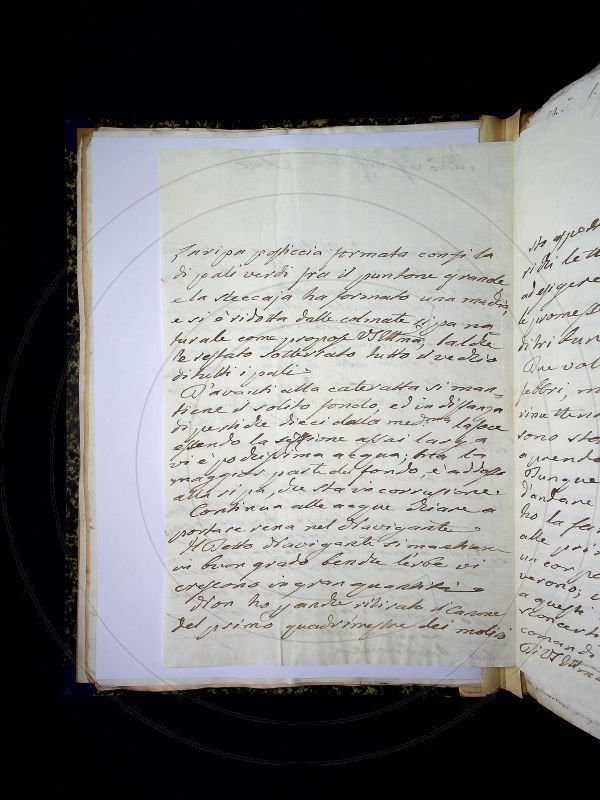 La ripa posticcia formata con fila
di pali verdi fra il puntone grande
e la steccaja ha formato una
e si è ridotta dalle colmate ripa na
turale come propose V.S. Ill.ma, talché
è restato sotterrato tutto il vecchio
di tutti i pali.
D'avanti alla cateratta si man=
tiene il solito fondo, ed in distanza
di pertiche dieci dalla med.ma la foce
essendo la sezione assai larga
vi è pochissima acqua; ma la
maggior parte del fondo, è addosso
alla ripa, che sta in corrosione.
Continua alle acque chiare a
portare rena nel Navigante.
Il detto Navigante si mantiene
in buon grado benche l'erbe vi
crescono in gran quantità.
Non ho pande ritirato il Canone
del primo quadrimestre dei molini
sto
ridi lett
ad esigere
le promess
di tri bun
Due vol
febbri, m
rimettend
sono sta
a prende
Dunque
d'andare
ho la fa
alle pri
un corp
verono,
a questi
sconcert
comando
Di V.S. Ill.ma